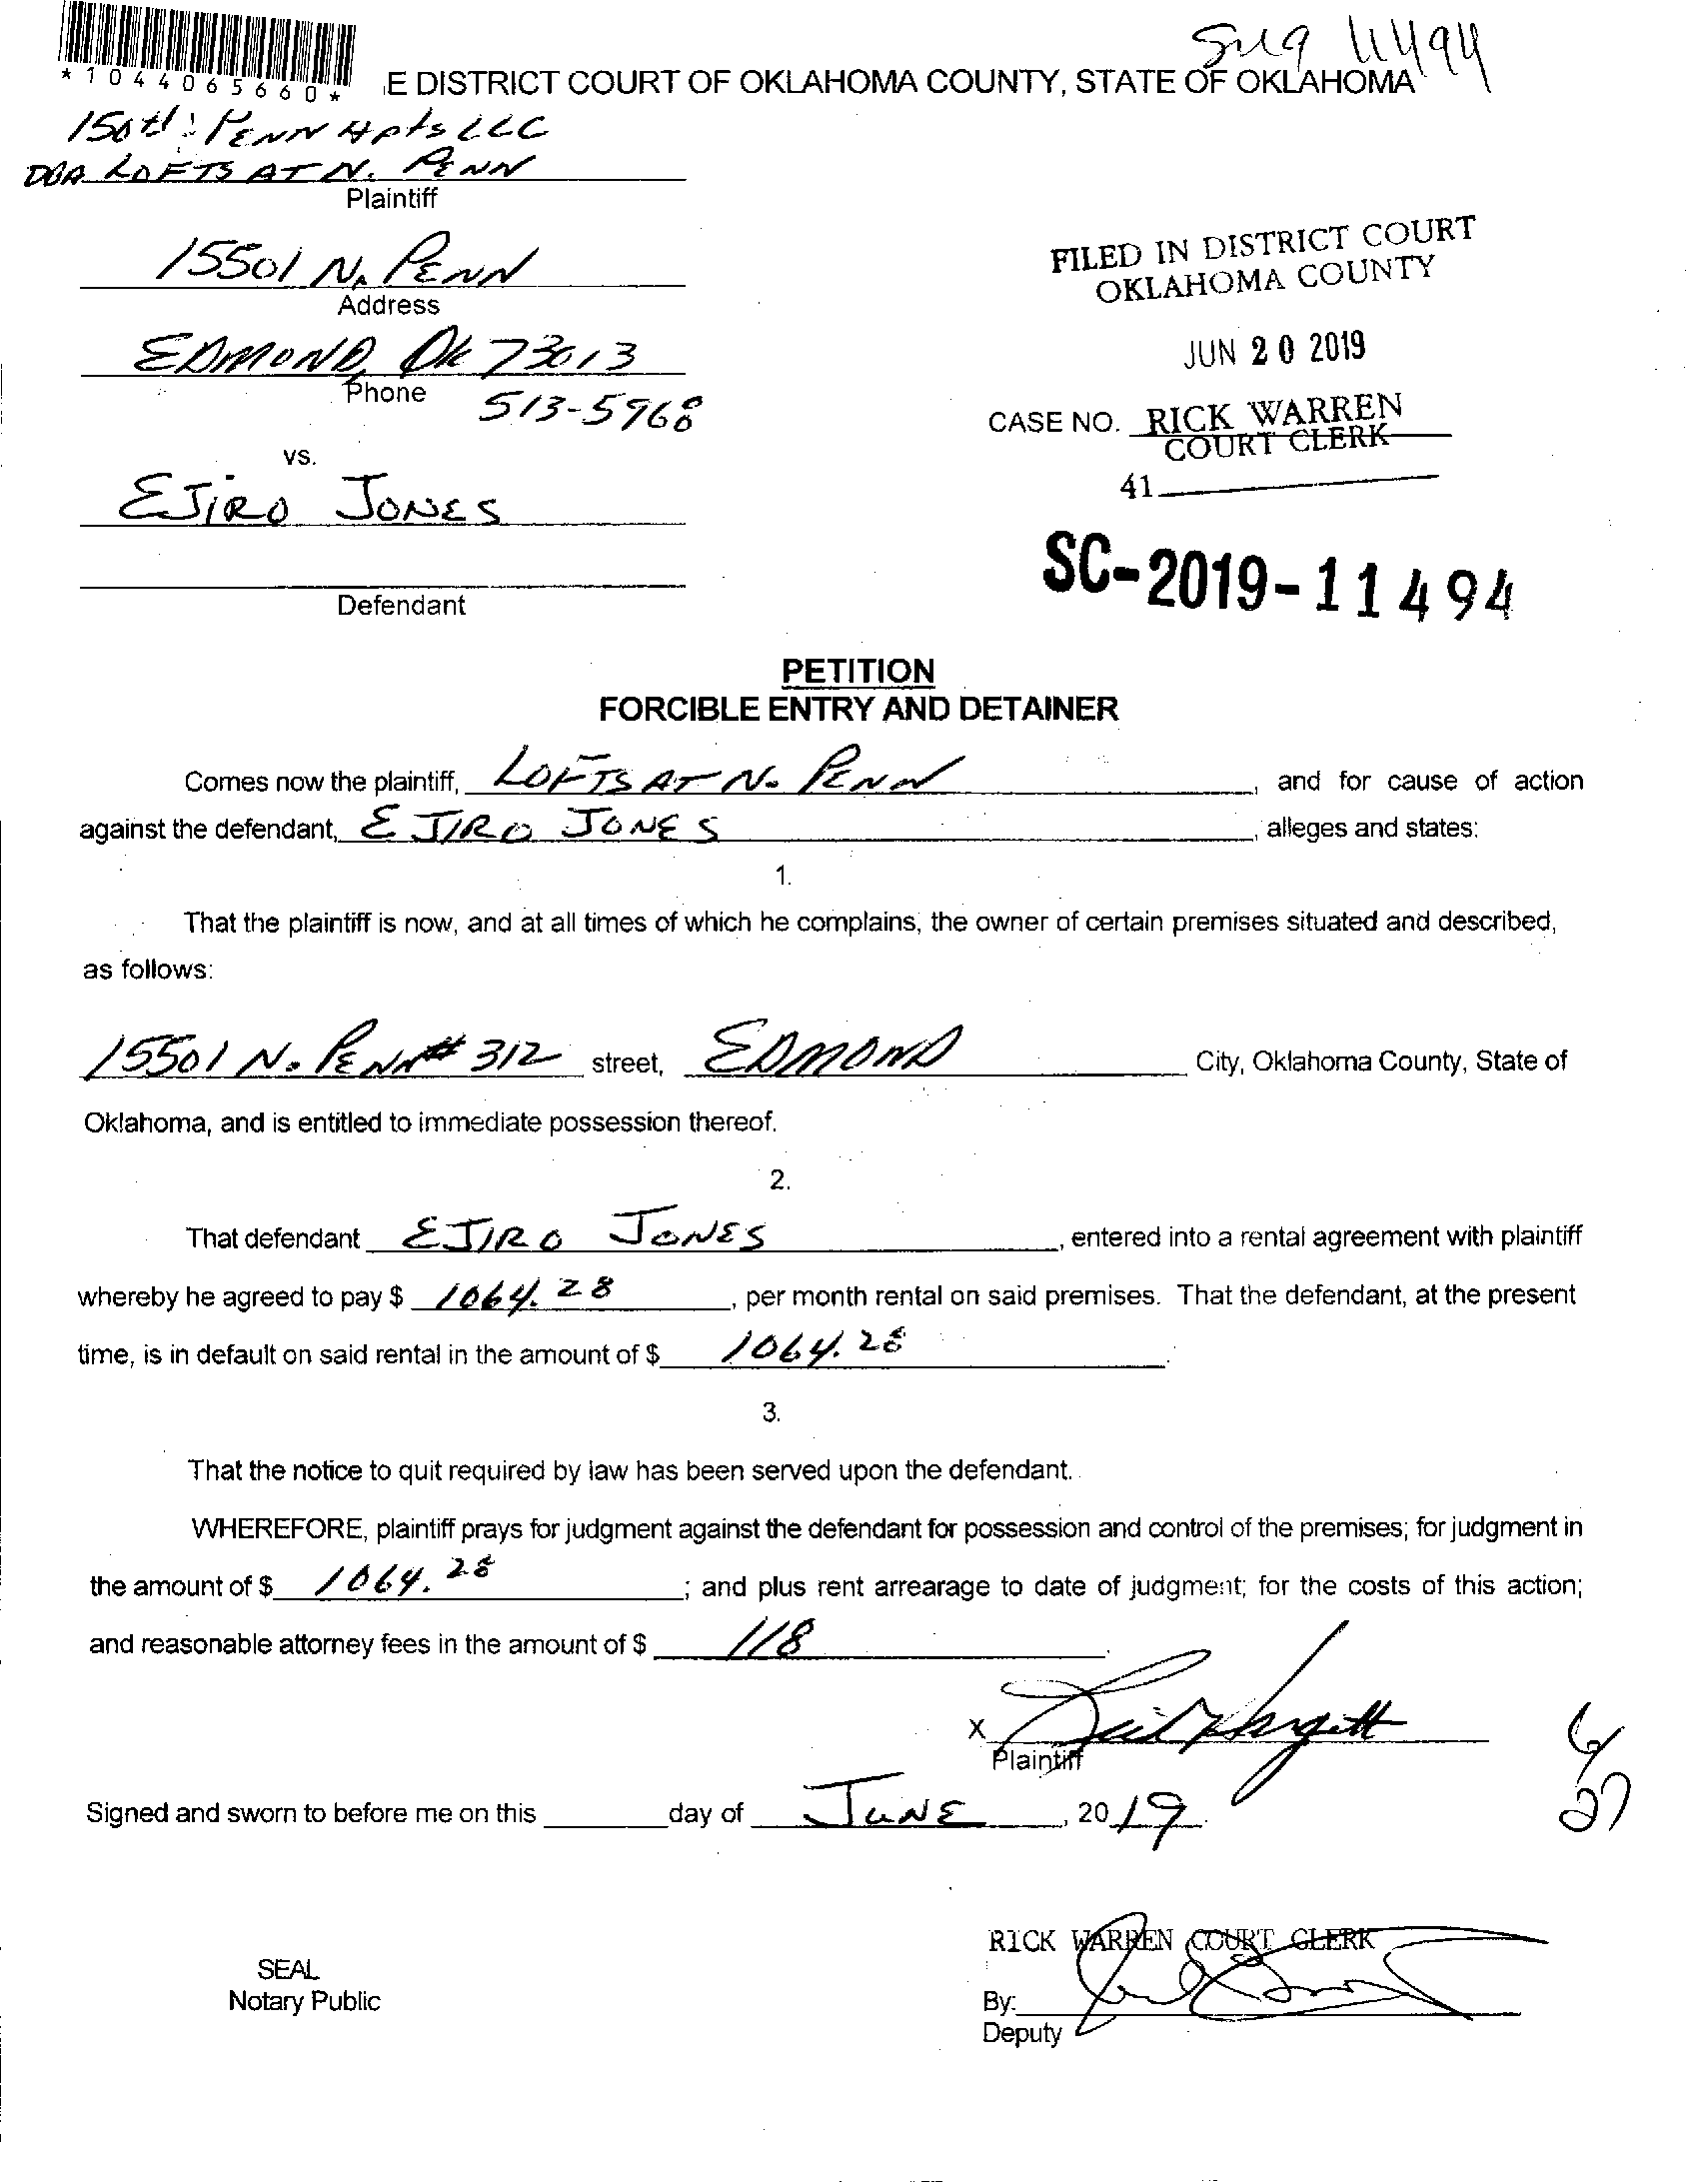 *1044065660*
E DISTRICT COURT OF OKLAHOMA COUNTY, STATE OF OKLAHOMA
11494
150th & PENN Apts LLC
DBA LOFTS AT N. PENN
Plaintiff
15501 N. PENN
Address
EDMOND, OK 73013
Phone 513-5968
vs.
EJIRO JONES
Defendant
FILED IN DISTRICT COURT
OKLAHOMA COUNTY
JUN 20 2019
CASE NO. RICK WARREN
COURT CLERK
41
SC-2019-11494
PETITION
FORCIBLE ENTRY AND DETAINER
Comes now the plaintiff, LOFTS AT N. PENN, and for cause of action
against the defendant, EJIRO JONES, alleges and states:
1.
That the plaintiff is now, and at all times of which he complains, the owner of certain premises situated and described,
as follows:
15501 N. PENN # 312 street, EDMOND City, Oklahoma County, State of
Oklahoma, and is entitled to immediate possession thereof.
2.
That defendant EJIRO JONES, entered into a rental agreement with plaintiff
whereby he agreed to pay $ 1064.28, per month rental on said premises. That the defendant, at the present
time, is in default on said rental in the amount of $ 1064.28.
3.
That the notice to quit required by law has been served upon the defendant.
WHEREFORE, plaintiff prays for judgment against the defendant for possession and control of the premises; for judgment in
the amount of $ 1064.28; and plus rent arrearage to date of judgment; for the costs of this action;
and reasonable attorney fees in the amount of $ 118.
X
Plaintiff
6/27
Signed and sworn to before me on this day of JUNE, 2019.
RICK WARREN COURT CLERK
SEAL
Notary Public
By:
Deputy